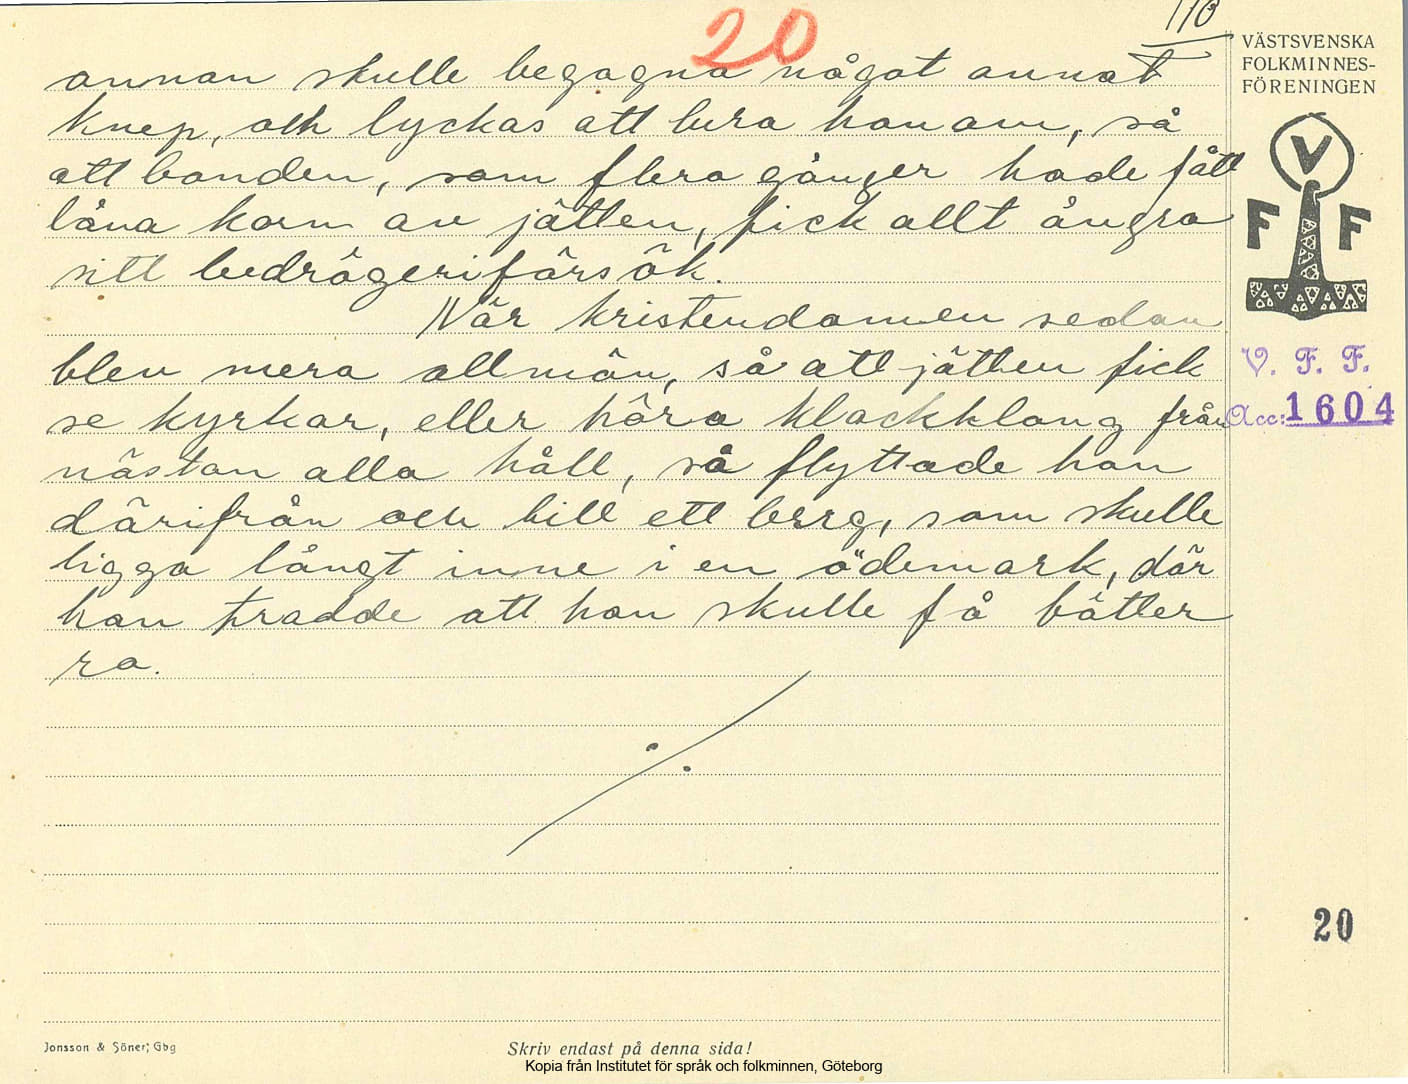 20
110
annan skulle begagna något annat
knep, och lyckas att lura honom, så
att bonden, som flera gånger hade fått
låna korn av jätten, fick allt ångra
sitt bedrägeriförsök.
När kristendommen sedan
blev mera allmän, så att jätten fick
se kyrkor, eller höra klockklang från
nästan alla håll, så flyttade han
därifrån och till ett berg, som skulle
ligga långt inne i en ödemark, där
han trodde att han skulle få bätter
ra.
VÄSTSVENSKA
FOLKMINNES-
FÖRENINGEN
V
F F
V. F. F.
Acc: 1604
20
Jonsson & Söner, Gbg
Skriv endast på denna sida!
Kopia från Institutet för språk och folkminnen, Göteborg